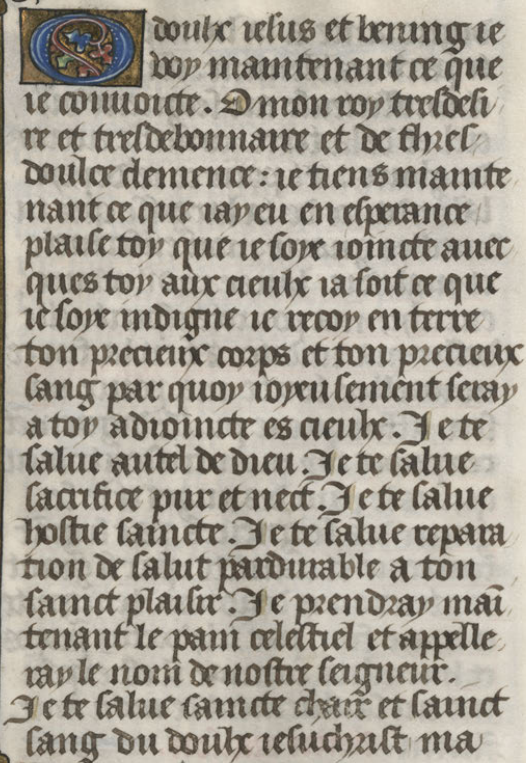 O doulx iesus et bening ie
voy maintenant ce que
ie conuoicte. O mon roy tresdesi
re et tresdebonnaire et de thres
doulce clemence: ie tiens mainte
nant ce que iay eu en esperance
plaise toy que ie soye ioincte auec
ques toy aux cieulx ia soit ce que
ie soye indigne ie recoy en terre
ton precieux corps et ton precieux
sang par quoy ioyeusement seray
a toy adioincte es cieulx. Je te
salue autel de dieu. Je te salue
sacrifice pur et nect. Je te salue
hostie saincte. Je te salue repara
tion de salut pardurable a ton
sainct plaisir. Je prendray mai
tenant le pain celestiel et appelle
ray le nom de nostre seigneur.
Je te salue saincte chair et sainct
sang du doulx iesuchrist ma